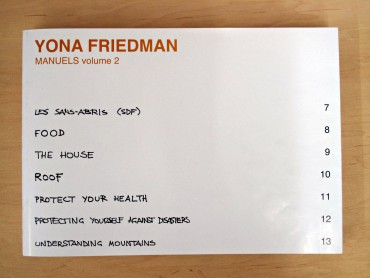 YONA FRIEDMAN
MANUELS volume 2
LES SANS-ABRIS (SDF) 7
FOOD 8
THE HOUSE 9
ROOF 10
PROTECT YOUR HEALTH 11
PROTECTING YOURSELF AGAINST DISASTERS 12
UNDERSTANDING MOUNTAINS 13